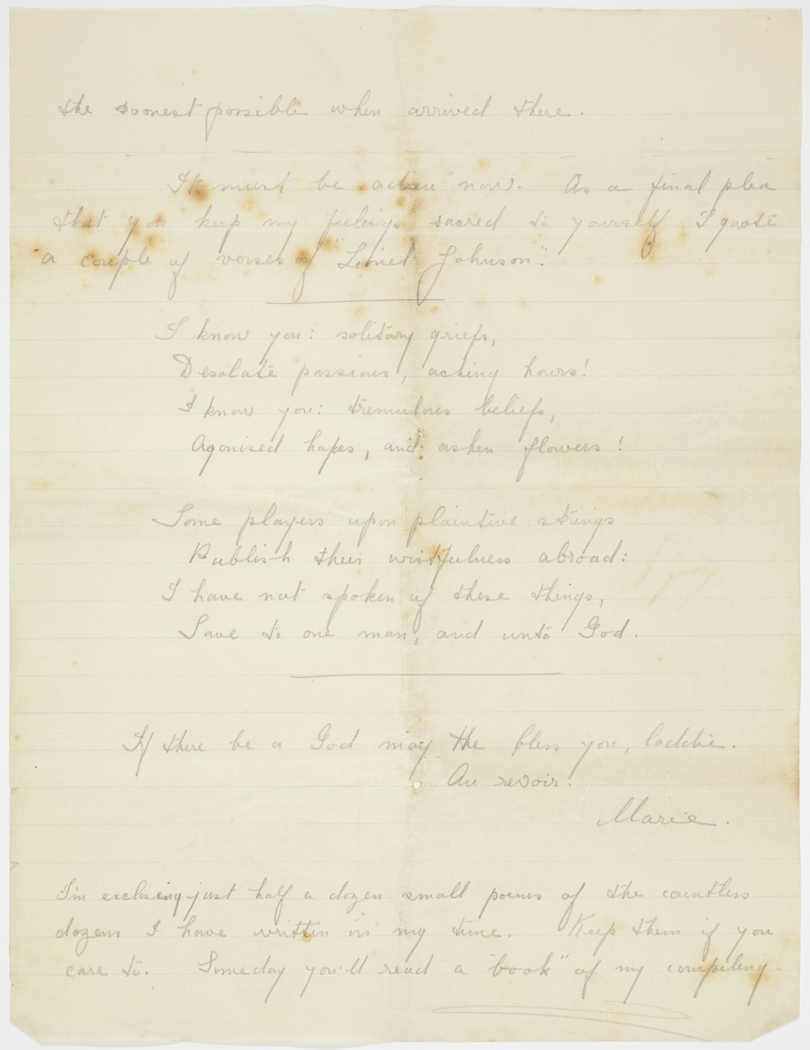 the soonest possible when arrived there.
It must be adieu now. As a final plea
that you keep my feelings sacred to yourself I quote
a couple of verses of "Lionel Johnson".
I know you: solitary griefs,
Desolate passions, aching hours!
I know you: tremulous beliefs,
Agonised hopes, and ashen flowers!
Some players upon plaintive strings
Publish their wistfulness abroad:
I have not spoken of these things,
Save to one man, and unto God.
If there be a God may He bless you, laddie.
Au revoir.
Marie.
I'm enclosing just half a dozen small poems of the countless
dozens I have written in my time. Keep them if you
care to. Someday you'll read a "book" of my compiling.